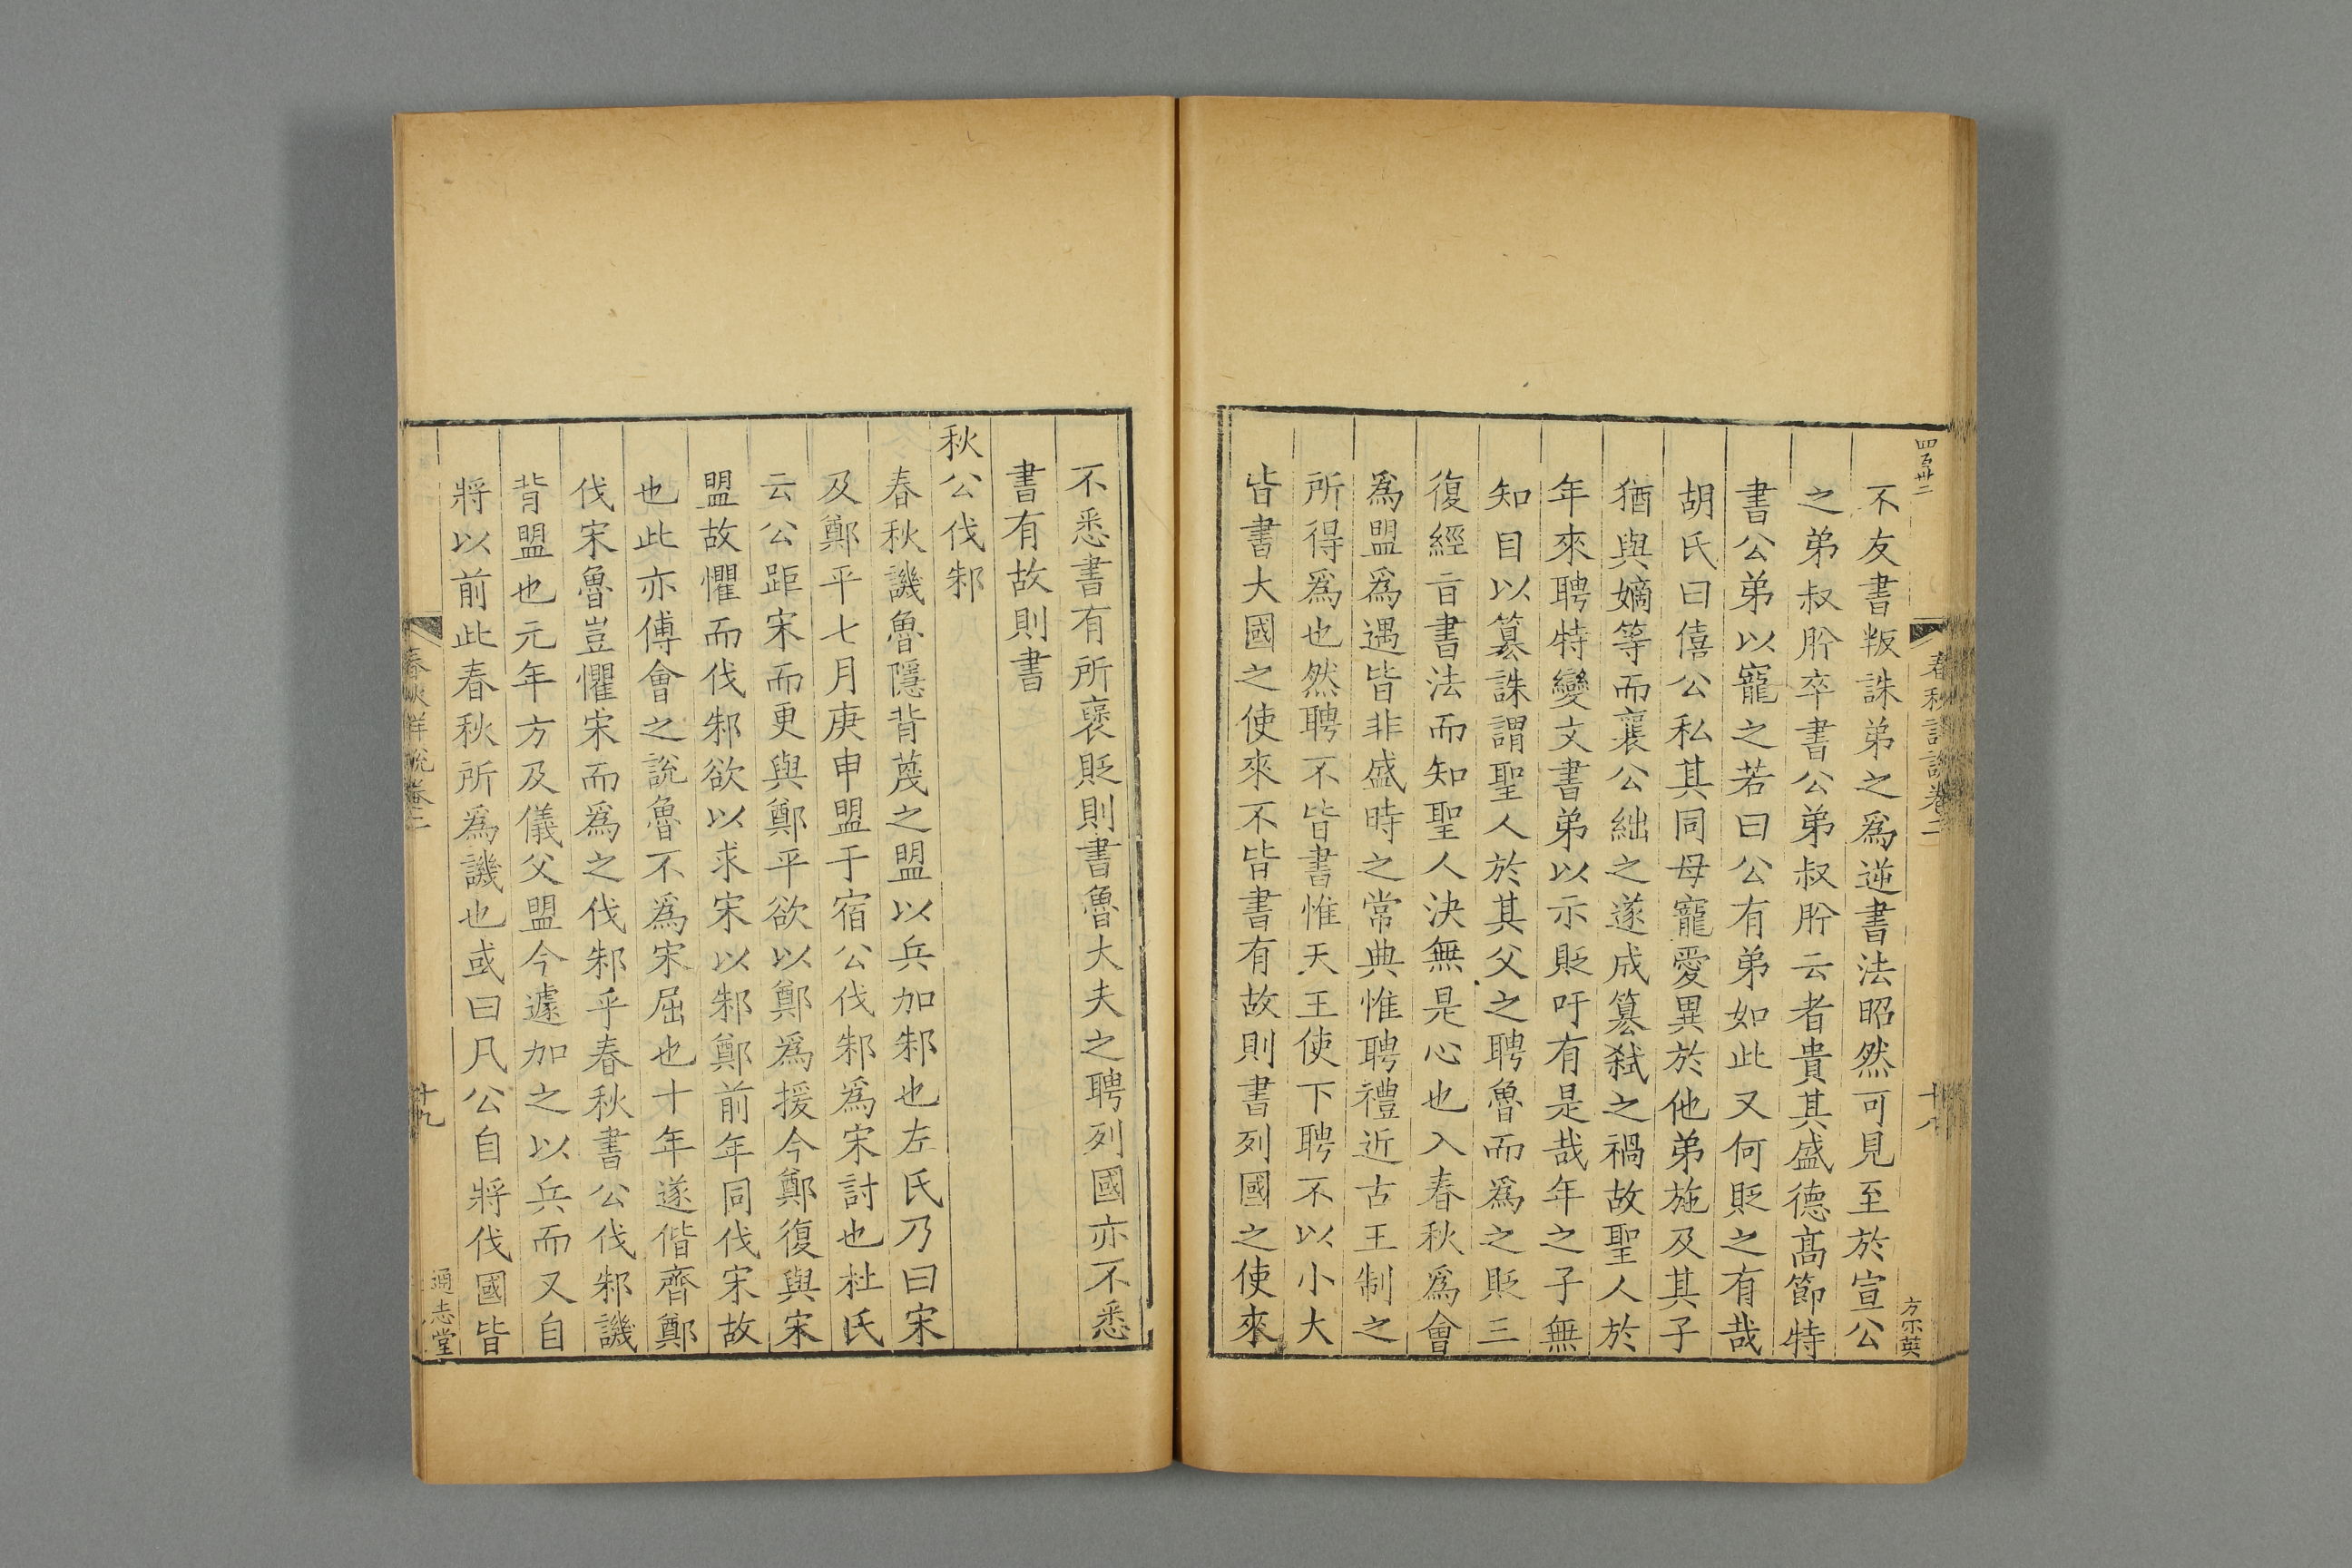 四百卅二
春秋詳說卷二
十八
方宗英
不友書叛誅弟之為逆書法昭然可見至於宣公
之弟叔肸卒書公弟叔肸云者貴其盛德高節特
書公弟以寵之若曰公有弟如此又何貶之有哉
胡氏曰僖公私其同母寵愛異於他弟施及其子
猶與嫡等而襄公絀之遂成篡弒之禍故聖人於
年來聘特變文書弟以示貶吁有是哉年之子無
知目以篡誅謂聖人於其父之聘魯而為之貶三
復經㫖書法而知聖人決無是心也入春秋為會
為盟為遇皆非盛時之常典惟聘禮近古王制之
所得為也然聘不皆書惟天王使下聘不以小大
皆書大國之使來不皆書有故則書列國之使來
不悉書有所褒貶則書魯大夫之聘列國亦不悉
書有故則書
秋公伐邾
春秋譏魯隱背蔑之盟以兵加邾也左氏乃曰宋
及鄭平七月庚申盟于宿公伐邾為宋討也杜氏
云公距宋而更與鄭平欲以鄭為援今鄭復與宋
盟故懼而伐邾欲以求宋以邾鄭前年同伐宋故
也此亦傅會之說魯不為宋屈也十年遂偕齊鄭
伐宋魯豈懼宋而為之伐邾乎春秋書公伐邾譏
背盟也元年方及儀父盟今遽加之以兵而又自
將以前此春秋所為譏也或曰凡公自將伐國皆
春秋詳說卷二
十九
通志堂